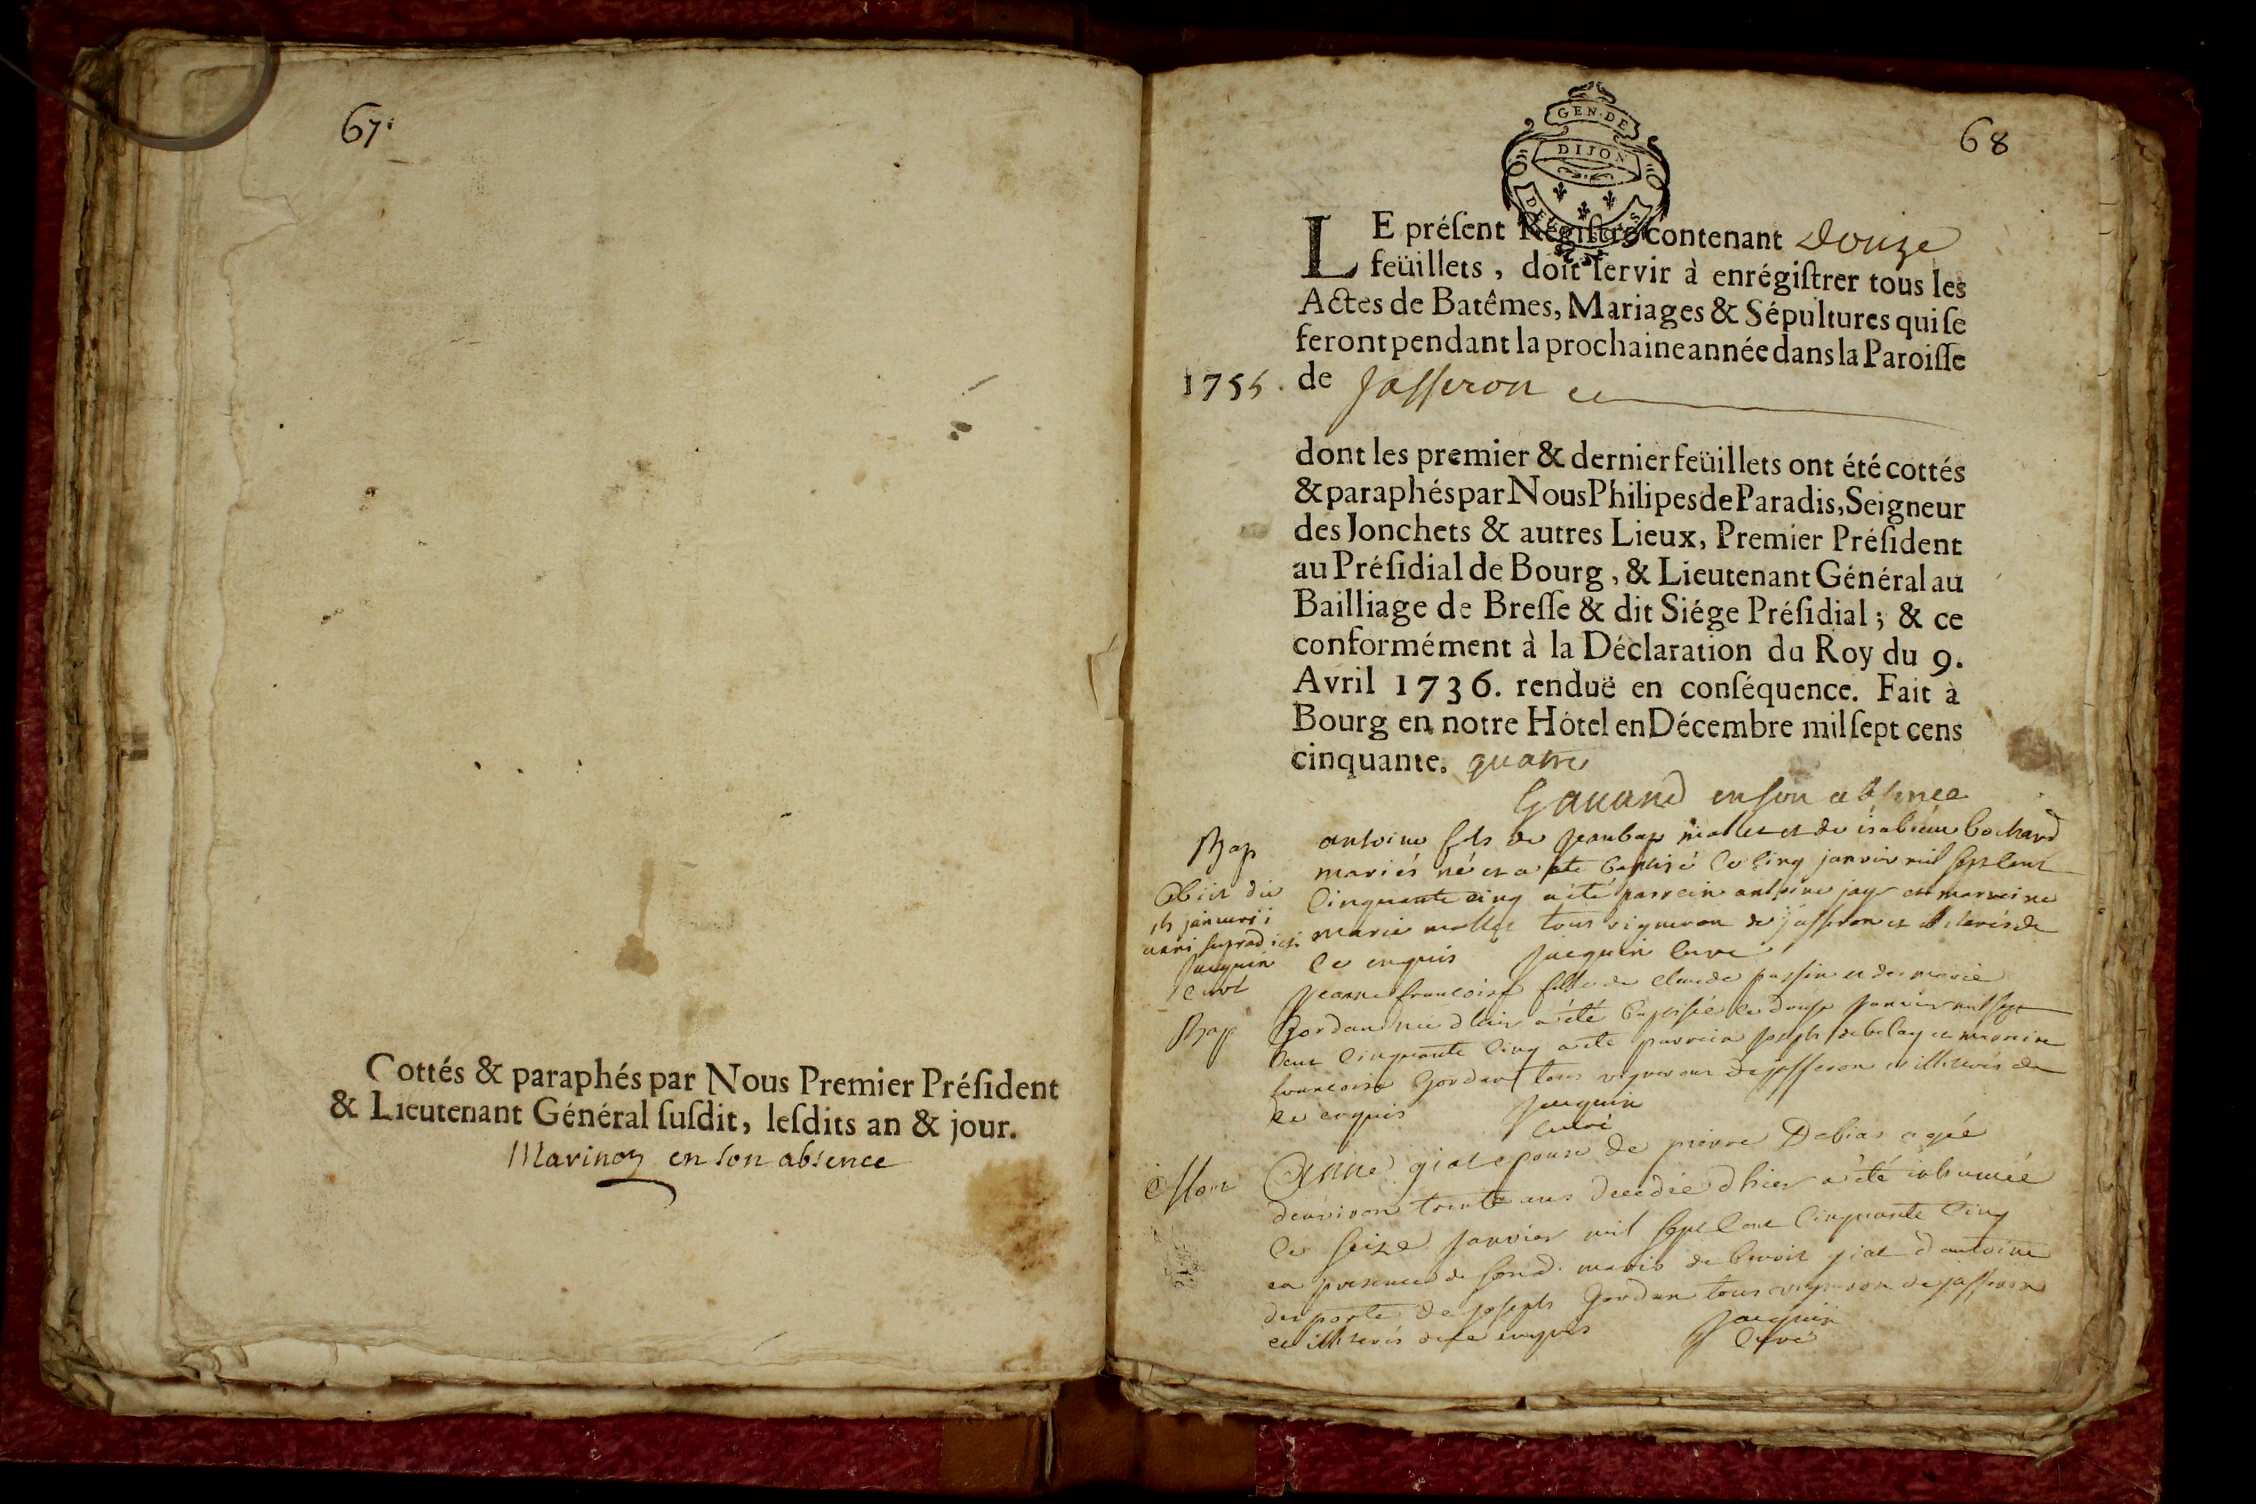 67
Cottés & paraphés par Nous Premier Préſident
& Lieutenant Général ſuſdit, leſdits an & jour.
Marinon en son absence
68
GEN. DE
DIJON
LE préſent Régiſtre contenant douze
feüillets, doit ſervir à enrégiſtrer tous les
Actes de Batêmes, Mariages & Sépultures qui ſe
feront pendant la prochaine année dans la Paroiſſe
1755. de Jasseron
dont les premier & dernier feüillets ont été cottés
& paraphés par Nous Philipes de Paradis, Seigneur
des Jonchets & autres Lieux, Premier Préſident
au Préſidial de Bourg, & Lieutenant Général au
Bailliage de Breſſe & dit Siége Préſidial ; & ce
conformément à la Déclaration du Roy du 9.
Avril 1736. renduë en conſéquence. Fait à
Bourg en notre Hôtel en Décembre mil ſept cens
cinquante. quatre
en son absence
Bap
antoine fils de Jean bap mallet et de isabeau bochard
mariés né et a ete baptisé le cinq janvier mil sept cent
cinquante cinq a été parrein antoine jay et marreine
marie mallet tous vigneron de jasseron et illiterés de
ce enquis Jacquin curé
obiit die
15 januarii
anni supradicti
Jacquin
curé
Bap
Jeanne francoise fille de claude passin et de marie
Gordan née d hier a été baptisée le douze janvier mil sept
cent cinquante cinq a été parrein joseph et mareine
francoise Gordan tous vignerons de jasseron et illiterés de
ce enquis Jacquin
curé
Mor
Anne giat epouse de pierre Debias agée
denviron trente ans decedée d hier a été inhumée
le seize janvier mil sept cent cinquante cinq
en presence de sond. maris de benoit giat d antoine
desporte de joseph Gordan tous vigneron de jasseron
et illiterés de ce enquis Jacquin
curé